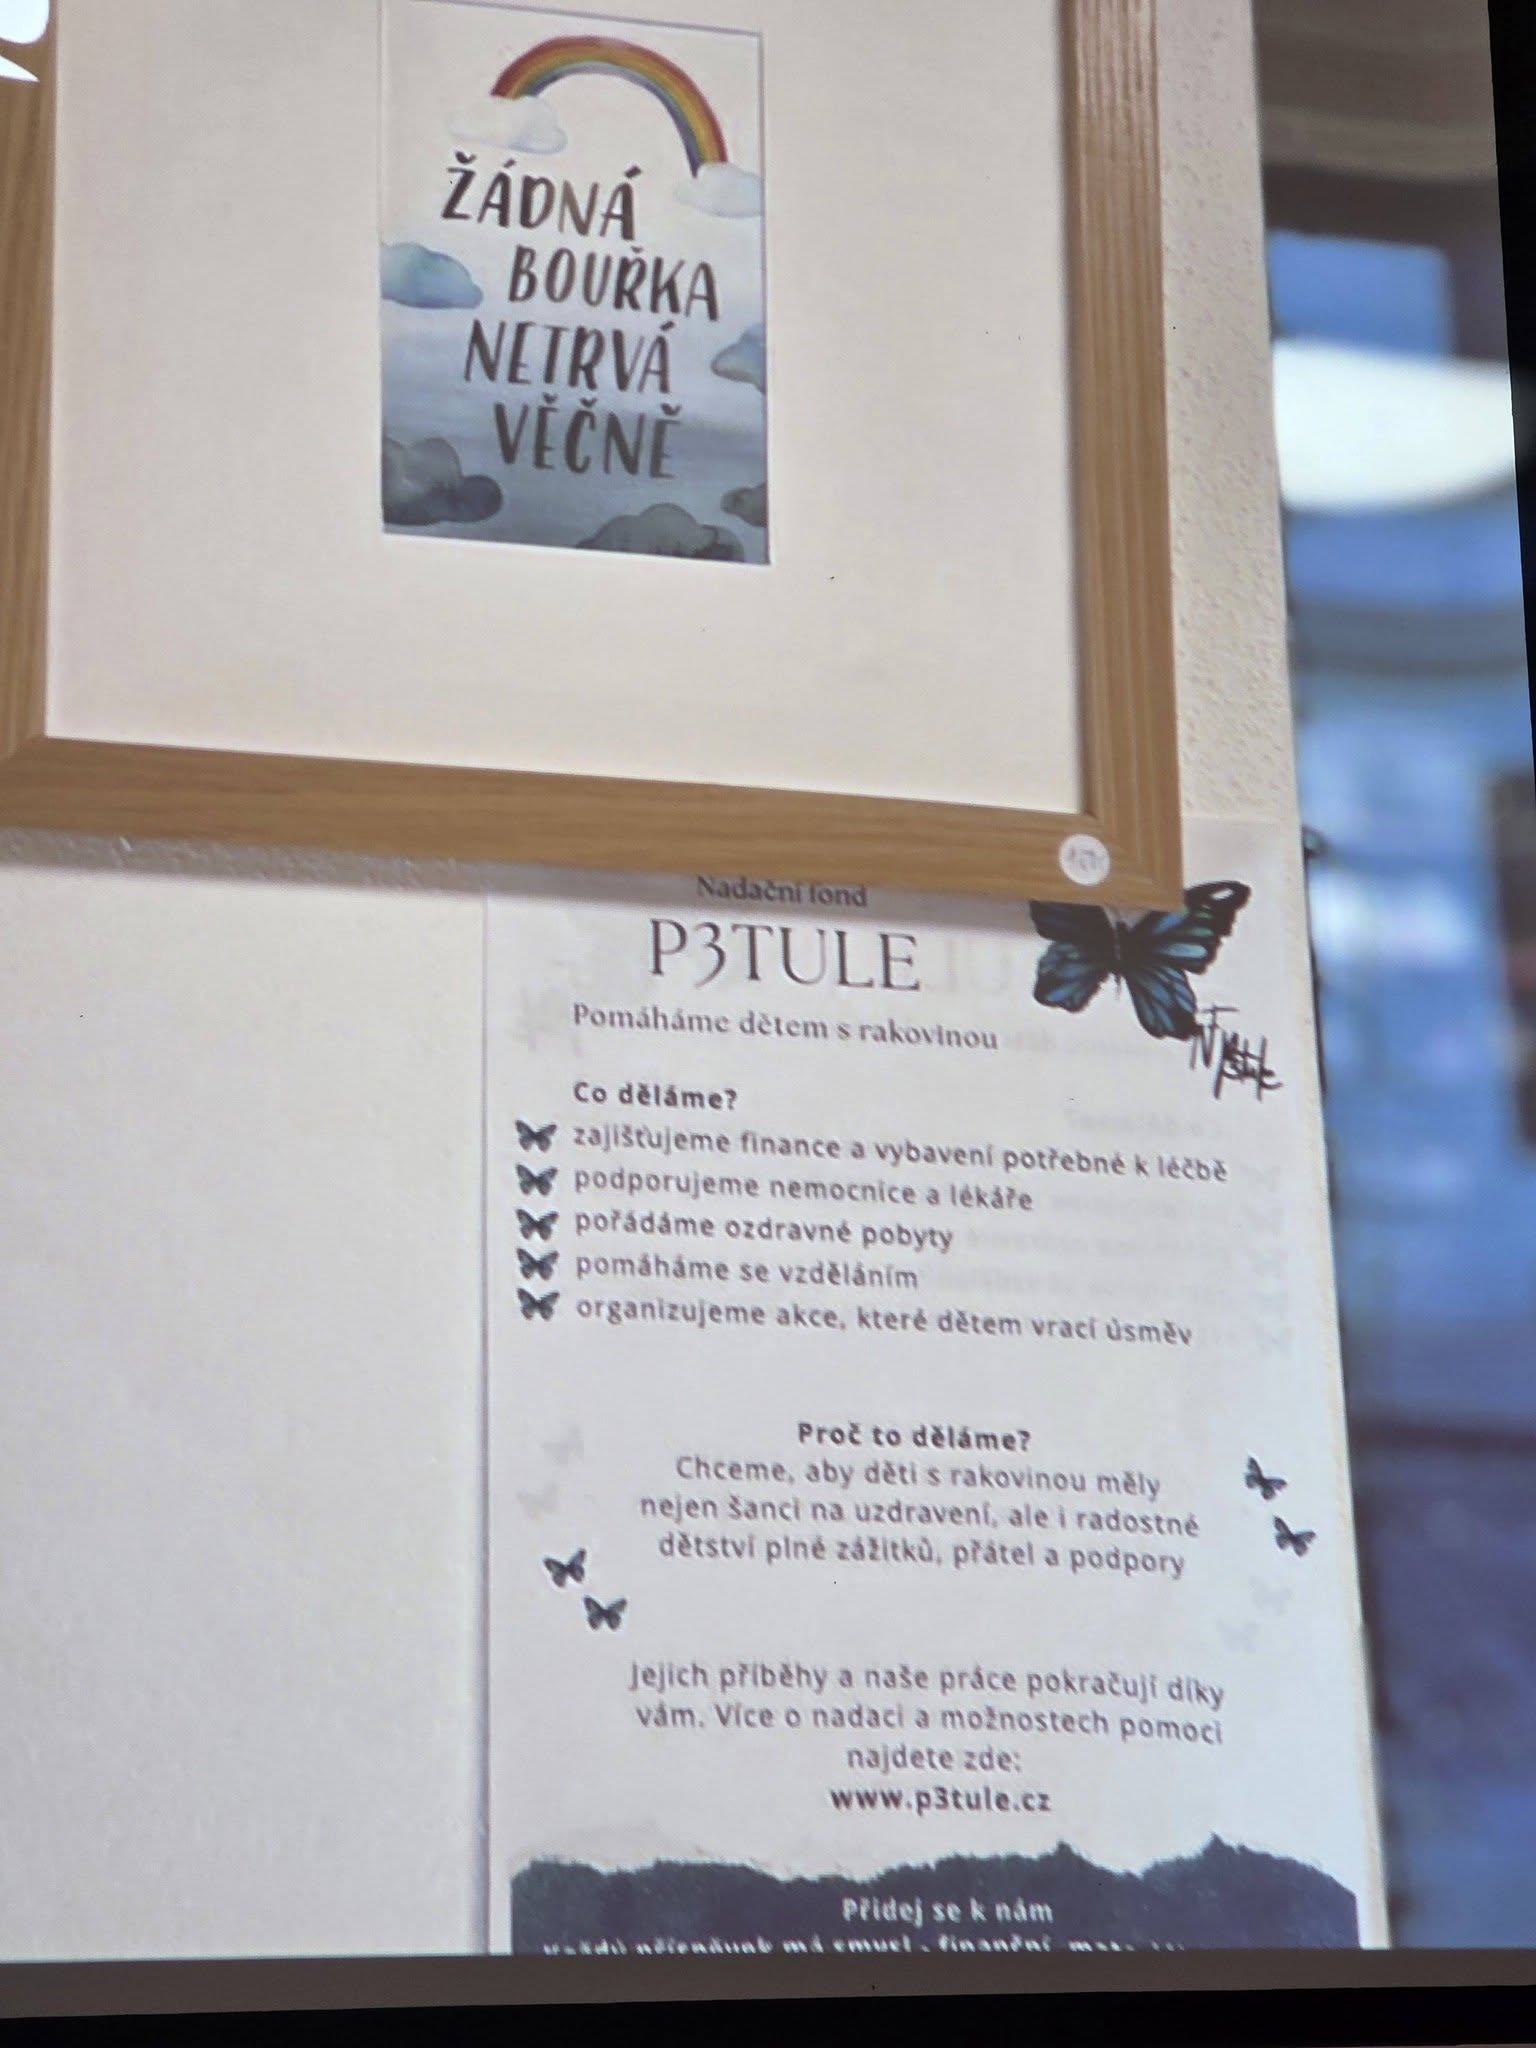 ŽÁDNÁ
BOUŘKA
NETRVÁ
VĚČNĚ
Nadační fond
P3TULE
Pomáháme dětem s rakovinou
Co děláme?
zajišťujeme finance a vybavení potřebné k léčbě
podporujeme nemocnice a lékáře
pořádáme ozdravné pobyty
pomáháme se vzděláním
organizujeme akce, které dětem vrací úsměv
Proč to děláme?
Chceme, aby děti s rakovinou měly
nejen šanci na uzdravení, ale i radostné
dětství plné zážitků, přátel a podpory
Jejich příběhy a naše práce pokračují díky
vám. Více o nadaci a možnostech pomoci
najdete zde:
www.p3tule.cz
Přidej se k nám
má smysl - finanční,